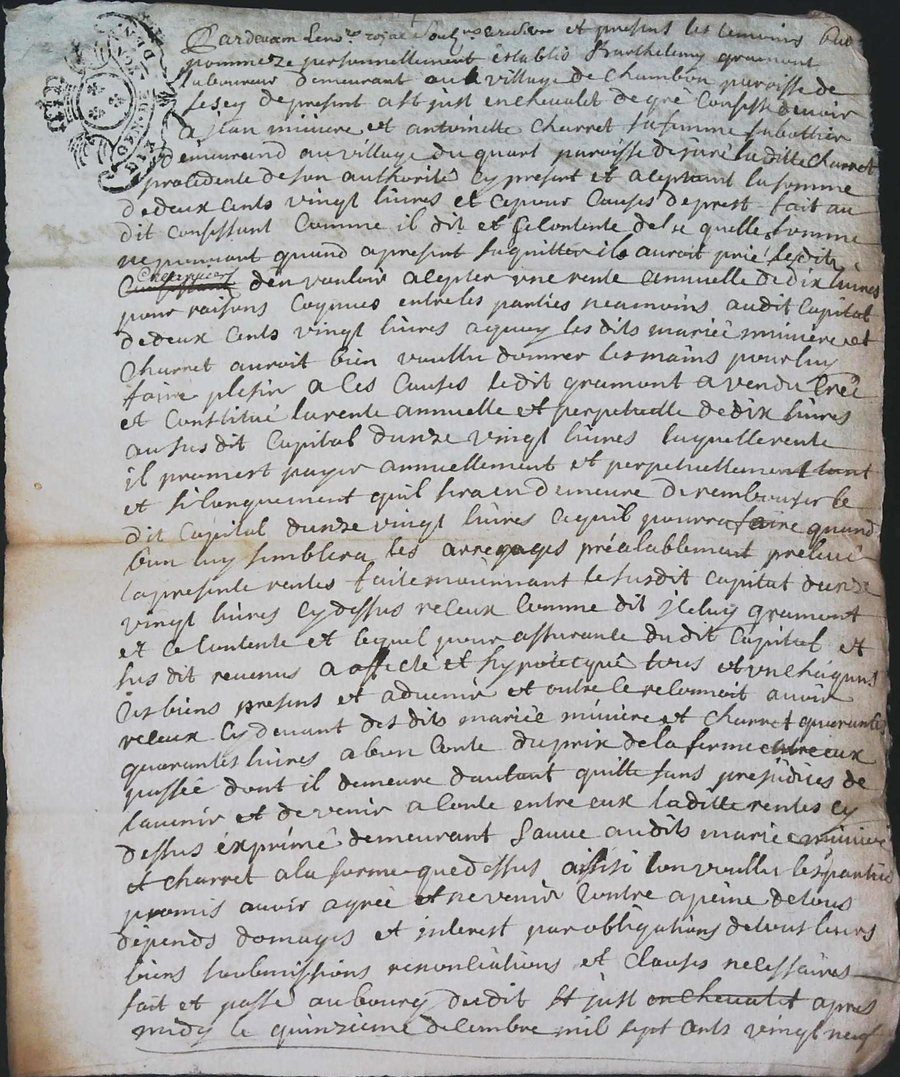 Pardevant le no.re royal soubsigné et presens les temoins bas
nommez personnellement establis Barthelemy gramont
laboureur demeurant au village de Chambon paroisse de
de present a st just en chevalet de gré Confesse devoir
a jean miniere et antoinette Charret sa femme sabottier
demeurand au village du quart paroisse de la ditte Charret
procedente de son authorité cy present et aceptant la somme
de deux Cents vingt livres et ce pour Causes de prest fait au
dit Confessant Comme il dit et se Contente de la quelle somme
ne pouvant quand a present saquitter ils auroit prié lesdits
Creanciers den vouloir acepter une rente annuelle de dix livres
pour raisons Cognues entre les parties neamoins audit Capital
de deux Cents vingt livres aquoy les dits mariés miniere et
Charret auroit bien voullu donner les mains pour luy
faire plesir a Ces Causes ledit gramont a vendu Créé
et Constitué la rente annuelle et perpetuelle de dix livres
au susdit Capital dunze vingt livres laquelle rente
il promest payer annuellement et perpetuellement tant
et si longuement quil sera en demeure de rembourser le
dit Capital dunze vingt livres aquil pourra faire quand
bon luy semblera les arreages préalablement prelevé
la presente rentes faite moienant le susdit Capital dunze
vingt livres cy dessus receux Comme dit jceluy gramont
et Ce Contente et lequel pour assurance du dit Capital et
susdit revenus a affecté et hypotecqué tous et un chaquns
ses biens presens et advenir et outre ce reconnoit avoir
receux cy devant des dits mariés miniere et Charret quarante
quarantes livres a bon Conte du prix de la ferme entre eux
passée dont il demeure dautant quitte sans prejudices de
lavenir et de venir a Conte entre eux la ditte rentes cy
dessus exprimé demeurant sauve audits mariés miniere
et Charret a la forme que dessus ainsi lon voullu les parties
promis avoir agréé et ne venir Contre a peine de tous
dépends domages et interest par obligations de tout leurs
biens soubmissions renonciations et Clauses necessaires
fait et passé au bourg dudit st just en chevalet apres
midy le quinzieme decembre mil sept cents vingt neuf